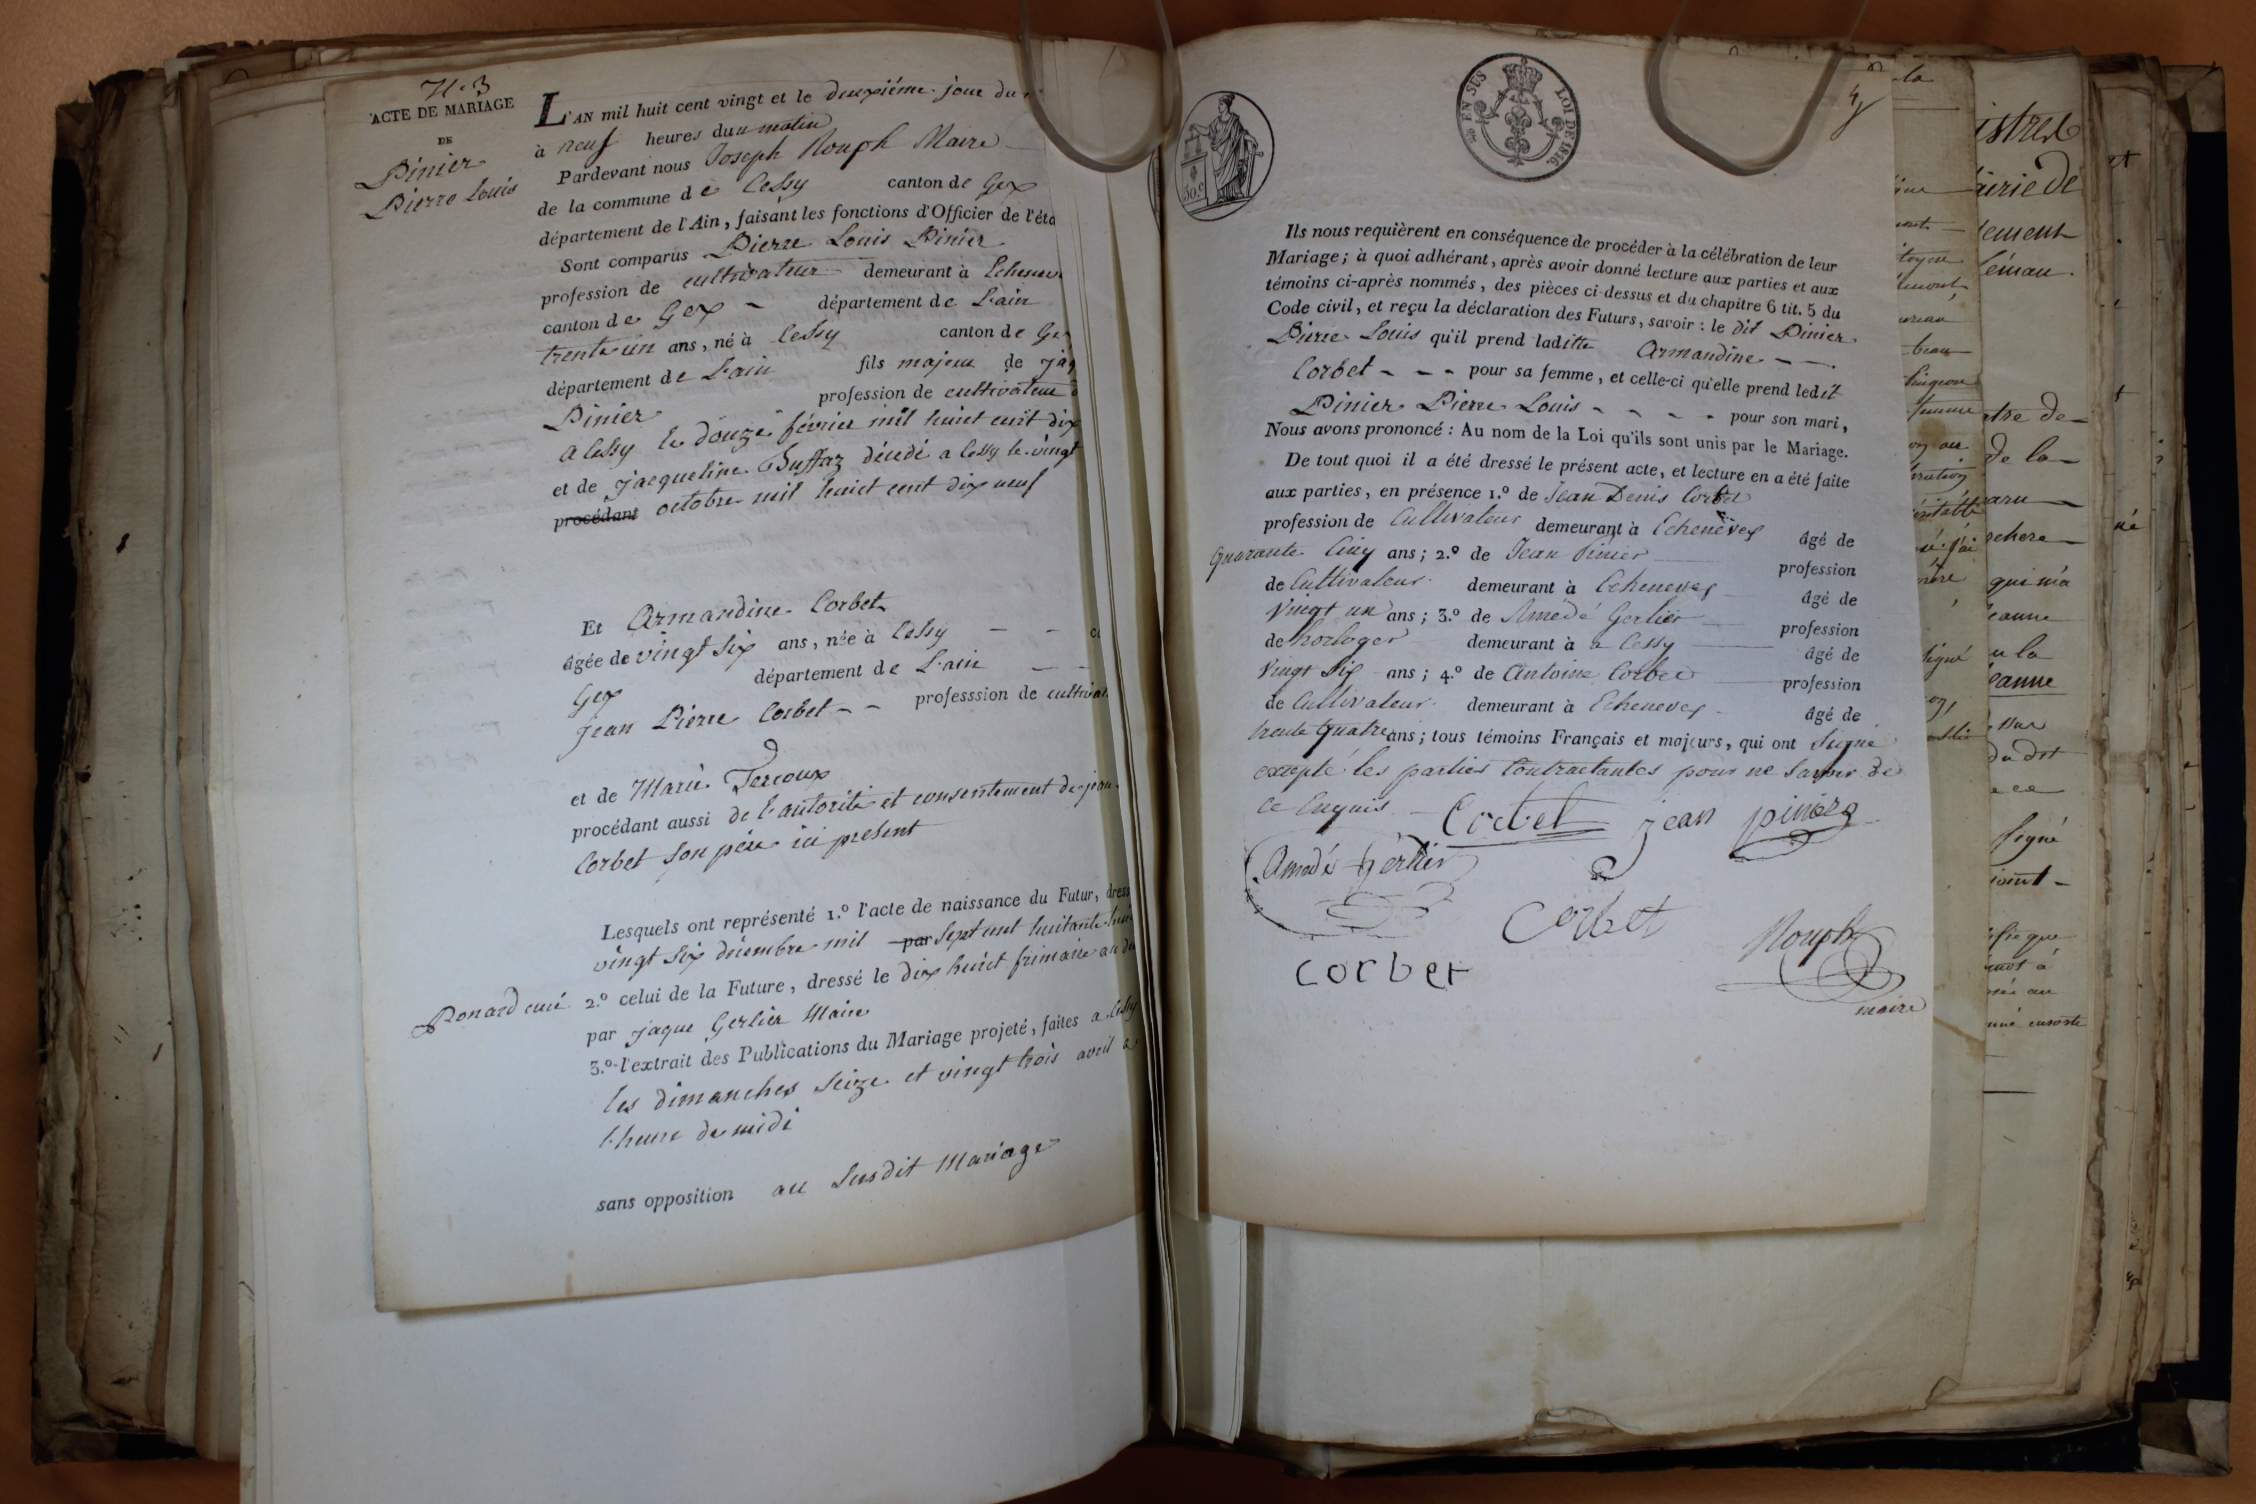 N.o 3
ACTE DE MARIAGE
DE
Pinier
Pierre Louis
L'AN mil huit cent vingt et le deuxiéme jour du
à neuf heures du matin
Pardevant nous Joseph Rouph Maire
de la commune de Cessy canton de Gex
département de l'Ain, faisant les fonctions d'Officier de l'éta
Sont comparus Pierre Louis Pinier
profession de cultivateur demeurant à Echenev
canton de Gex département de L'ain
trente un ans, né à Cessy canton de Ge
département de L'ain fils majeur de jaq
Pinier profession de cultivateur
a Cessy le douze février mil huict cent dix
et de jacqueline Buffaz décédé a Cessy le vingt
procédant octobre mil huict cent dix neuf
Et Armandine Corbet
âgée de vingt six ans, née à Cessy
Gex département de L'ain
jean Pierre Corbet professsion de cultivat
et de Marie Tercoux
procédant aussi de l'autorité et consentement de jean
Corbet son père ici présent
Lesquels ont représenté 1.º l'acte de naissance du Futur, dress
vingt six décembre mil par sept cent huitante huit
Ronard curé
2.º celui de la Future, dressé le dix huict frimaire an de
par jaque Gerlier Maire
3.º l'extrait des Publications du Mariage projeté, faites a Cessy
les dimanches seize et vingt trois avril a
l'heure de midi
sans opposition au susdit mariage
50 c
EN SUS LOI DE 1816.
4
Ils nous requièrent en conséquence de procéder à la célébration de leur
Mariage; à quoi adhérant, après avoir donné lecture aux parties et aux
témoins ci-après nommés, des pièces ci-dessus et du chapitre 6 tit. 5 du
Code civil, et reçu la déclaration des Futurs, savoir: le dit Pinier
Pierre Louis qu'il prend laditte Armandine
Corbet pour sa femme, et celle-ci qu'elle prend ledit
Pinier Pierre Louis pour son mari,
Nous avons prononcé: Au nom de la Loi qu'ils sont unis par le Mariage.
De tout quoi il a été dressé le présent acte, et lecture en a été faite
aux parties, en présence 1.º de Jean Denis Corbet
profession de Cultivateur demeurant à Echenèvex âgé de
quarante Cinq ans; 2.º de Jean Pinier profession
de Cultivateur demeurant à Echenevex âgé de
Vingt un ans; 3.º de Amedé Gerlier profession
de horloger demeurant à a Cessy âgé de
Vingt Six ans; 4.º de Antoine Corbet profession
de Cultivateur demeurant à Echenevex âgé de
trente quatre ans; tous témoins Français et majeurs, qui ont Signé
excepté les parties Contractantes pour ne Savoir de
ce Enquis
Corbet jean pinier
Amedé Gerlier
Corbet
Rouph
corbet
maire